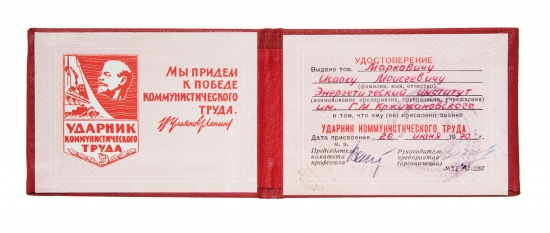 Мы придем
к победе
коммунистического
труда.
УДАРНИК
КОММУНИСТИЧЕСКОГО
ТРУДА
УДОСТОВЕРЕНИЕ
Выдано тов. Марковичу
Исааку Моисеевичу
(фамилия, имя, отчество)
Энергетический институт
(наименование предприятия, организации, учреждения)
им. Г.М. Кржижановского
в том, что ему (ей) присвоено звание
УДАРНИК КОММУНИСТИЧЕСКОГО ТРУДА
Дата присвоения 26 июня 1970 г.
м. п.
Председатель Руководитель
комитета предприятия
профсоюза (организации)